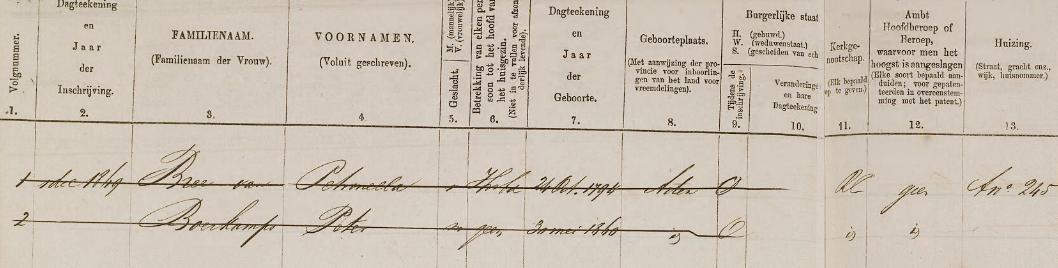 Volgnummer.
Dagteekening
en
Jaar
der
Inschrijving.
FAMILIENAAM.
(Familienaam der Vrouw).
VOORNAMEN.
(Voluit geschreven).
Geslacht.
M. (mannelijk)
V. (vrouwelijk)
Betrekking van elken per-
soon tot het hoofd van
het huisgezin.
(Niet in te vullen voor afzon-
derlijk levende).
Dagteekening
en
Jaar
der
Geboorte.
Geboorteplaats.
(Met aanwijzing der pro-
vincie voor inboorlin-
gen van het land voor
vreemdelingen).
Burgerlijke staat
H. (gehuwd.)
W. (weduwenstaat.)
S. (gescheiden van ech
Tijdens de
inschrijving.
Veranderinge
en hare
Dagteekening
Kerkge-
nootschap.
(Elk bepaald
op te geven.)
Ambt
Hoofdberoep of
Beroep,
waarvoor men het
hoogst is aangeslagen
(Elke soort bepaald aan-
duiden; voor gepaten-
teerden in overeenstem-
ming met het patent.)
Huizing.
(Straat, gracht enz.,
wijk, huisnommer.)
1. 2. 3. 4. 5. 6. 7. 8. 9. 10. 11. 12. 13.
1 1 dec 1849 Bree van Petronella v Hoofd 24 Oct. 1794 O RC geen A no. 245
2 Boerkamps Peter m geen 30 mei 1860 id O id id